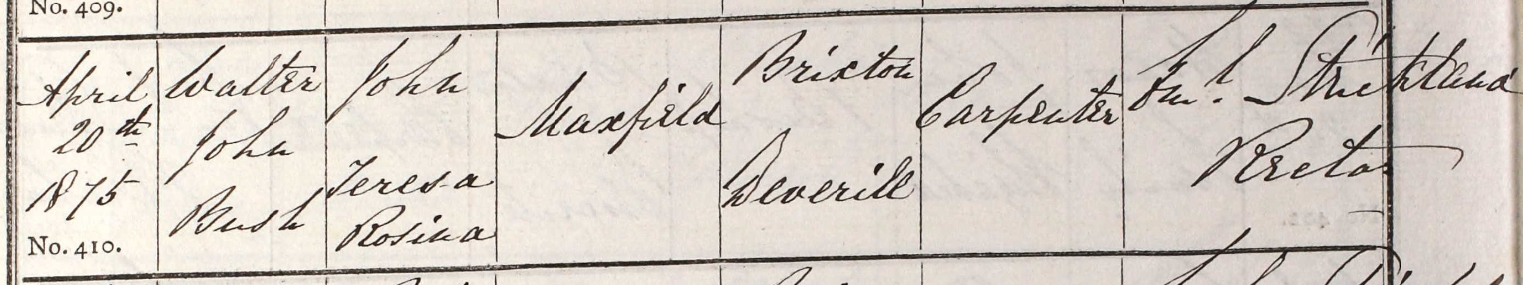 No. 409.
April
20th
1875
No. 410.
Walter
John
Bush
John
Teresa
Rosina
Maxfield
Brixton
Deverill
Carpenter
Strickland
Rector